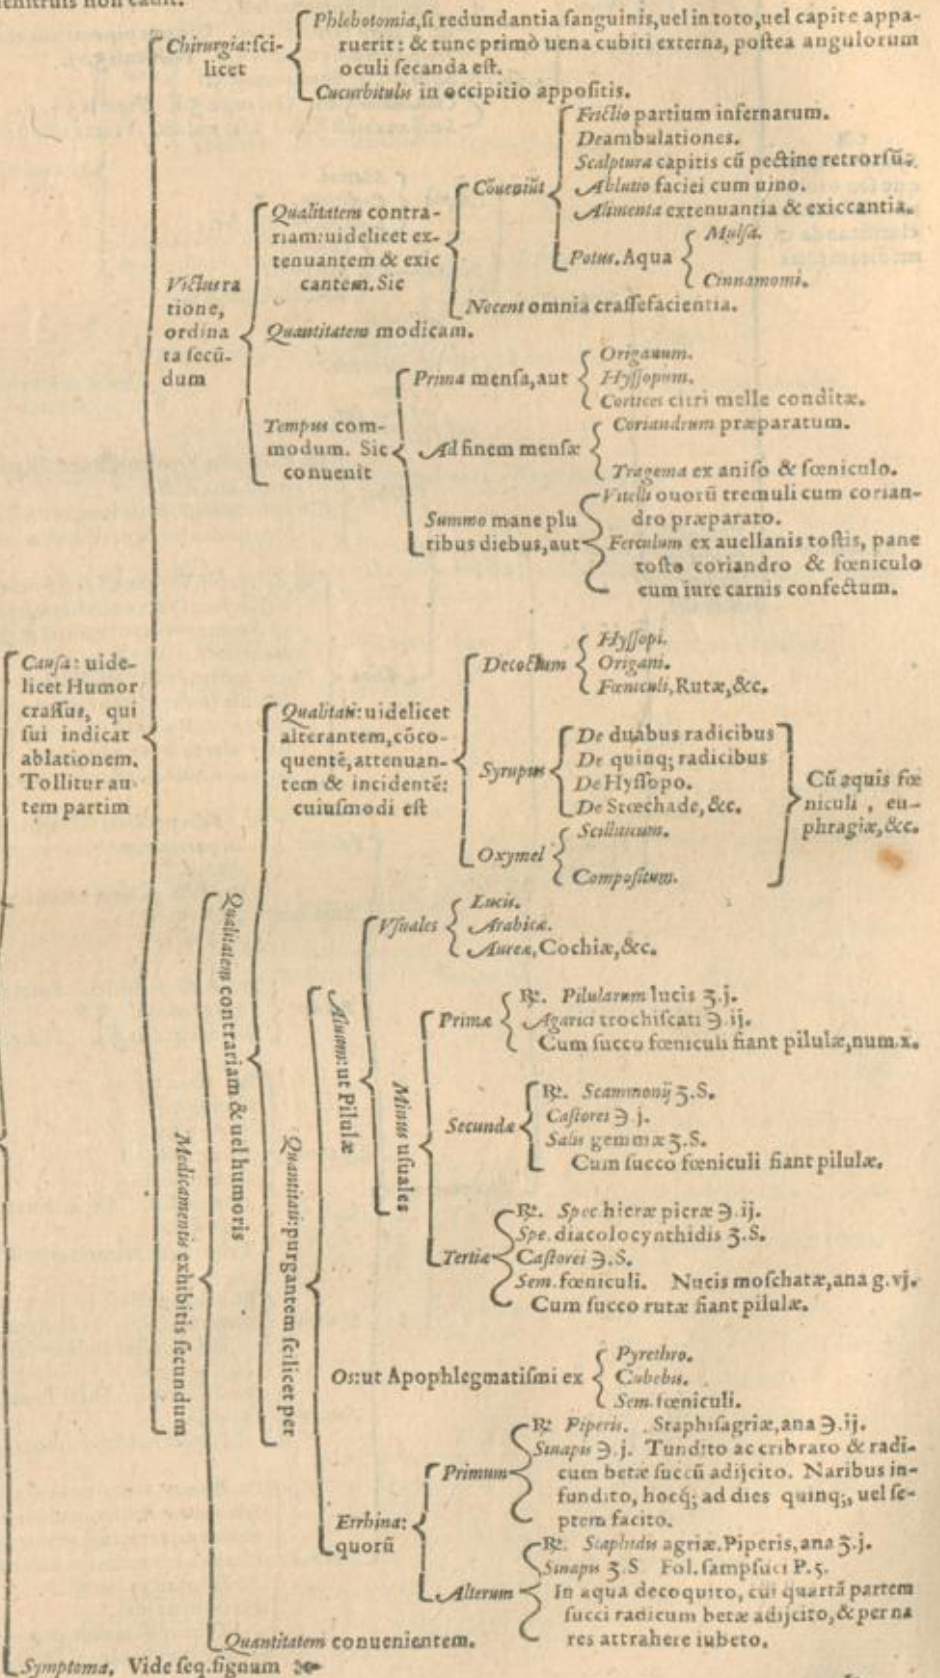 Chirurgia: ſci-
licet
Phlebotomia, ſi redundantia ſanguinis, uel in toto, uel capite appa-
ruerit: & tunc primò uena cubiti externa, poſtea angulorum
oculi ſecanda eſt.
Cucurbitulis in occipitio appoſitis.
Victus ra
tione,
ordina
ta ſecū-
dum
Qualitatem contra-
riam: uidelicet ex-
tenuantem & exic
cantem. Sic
Cōueniūt
Frictio partium infernarum.
Deambulationes.
Scalptura capitis cū pectine retrorſū.
Ablutio faciei cum uino.
Alimenta extenuantia & exiccantia.
Potus. Aqua
Mulſa.
Cinnamomi.
Nocent omnia craſſefacientia.
Quantitatem modicam.
Tempus com-
modum. Sic
conuenit
Prima menſa, aut
Origanum.
Hyſſopum.
Cortices citri melle conditæ.
Ad finem menſæ
Coriandrum præparatum.
Tragema ex aniſo & fœniculo.
Summo mane plu
ribus diebus, aut
Vitelli ouorū tremuli cum corian-
dro præparato.
Ferculum ex auellanis toſtis, pane
toſto coriandro & fœniculo
cum iure carnis confectum.
Cauſa: uide-
licet Humor
craſſus, qui
ſui indicat
ablationem.
Tollitur au-
tem partim
Medicamentis exhibitis ſecundum
Qualitatem contrariam & uel humoris
Qualitati: uidelicet
alterantem, cōco-
quentē, attenuan-
tem & incidentē:
cuiuſmodi eſt
Decoctum
Hyſſopi.
Origani.
Fœniculi, Rutæ, &c.
Syrupus
De duabus radicibus
De quinq; radicibus
De Hyſſopo.
De Stœchade, &c.
Oxymel
Scilliticum.
Compoſitum.
Cū aquis fœ
niculi, eu-
phragiæ, &c.
Quantitati: purgantem ſcilicet per
Aluum: ut Pilulæ
Vſuales
Lucis.
Arabicæ.
Aureæ, Cochiæ, &c.
Minus uſuales
Primæ
℞. Pilularum lucis ʒ.j.
Agarici trochiſcati ℈ ij.
Cum ſucco fœniculi fiant pilulæ, num.x.
Secundæ
℞. Scammonij ʒ.S.
Caſtorei ℈ j.
Salis gemmæ ʒ.S.
Cum ſucco fœniculi fiant pilulæ.
Tertiæ
℞. Spec hieræ picræ ℈ ij.
Spe. diacolocynthidis ʒ.S.
Caſtorei ℈.S.
Sem. fœniculi. Nucis moſchatæ, ana g.vj.
Cum ſucco rutæ fiant pilulæ.
Os: ut Apophlegmatiſmi ex
Pyrethro.
Cubebis.
Sem. fœniculi.
Errhina:
quorū
Primum
℞ Piperis. Staphiſagriæ, ana ℈.ij.
Sinapis ℈.j. Tundito ac cribrato & radi-
cum betæ ſuccū adijcito. Naribus in-
fundito, hocq́; ad dies quinq;, uel ſe-
ptem facito.
Alterum
℞. Staphidis agriæ. Piperis, ana ʒ.j.
Sinapis ʒ.S Fol. ſampſuci P.5.
In aqua decoquito, cui quartā partem
ſucci radicum betæ adijcito, & per na
res attrahere iubeto.
Quantitatem conuenientem.
Symptoma. Vide ſeq. ſignum